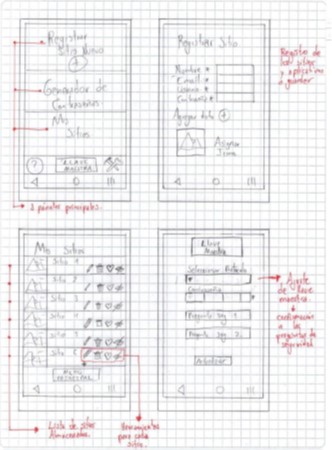 Registrar
Sitio Nuevo
Generador de
Contraseñas
Mis
Sitios
?
LLAVE
MAESTRA
3 paneles principales.
Registrar Sitio
Nombre *
E-mail *
Usuario *
Contraseña *
Agregar Nota
Asignar
Icono
Registro de
los sitios
y aplicativos
a guardar
Mis Sitios
Sitio 1
Sitio 2
Sitio 3
Sitio 4
Sitio 5
Sitio 6
MENU
PRINCIPAL
Lista de sitios
Almacenados.
Herramientas
para cada
sitio.
Llave
Maestra
Seleccionar
Contraseña
Pregunta Seg 1
Pregunta Seg 2
Actualizar
Ajuste
de llave
maestra y
configuración
a las
preguntas de
seguridad